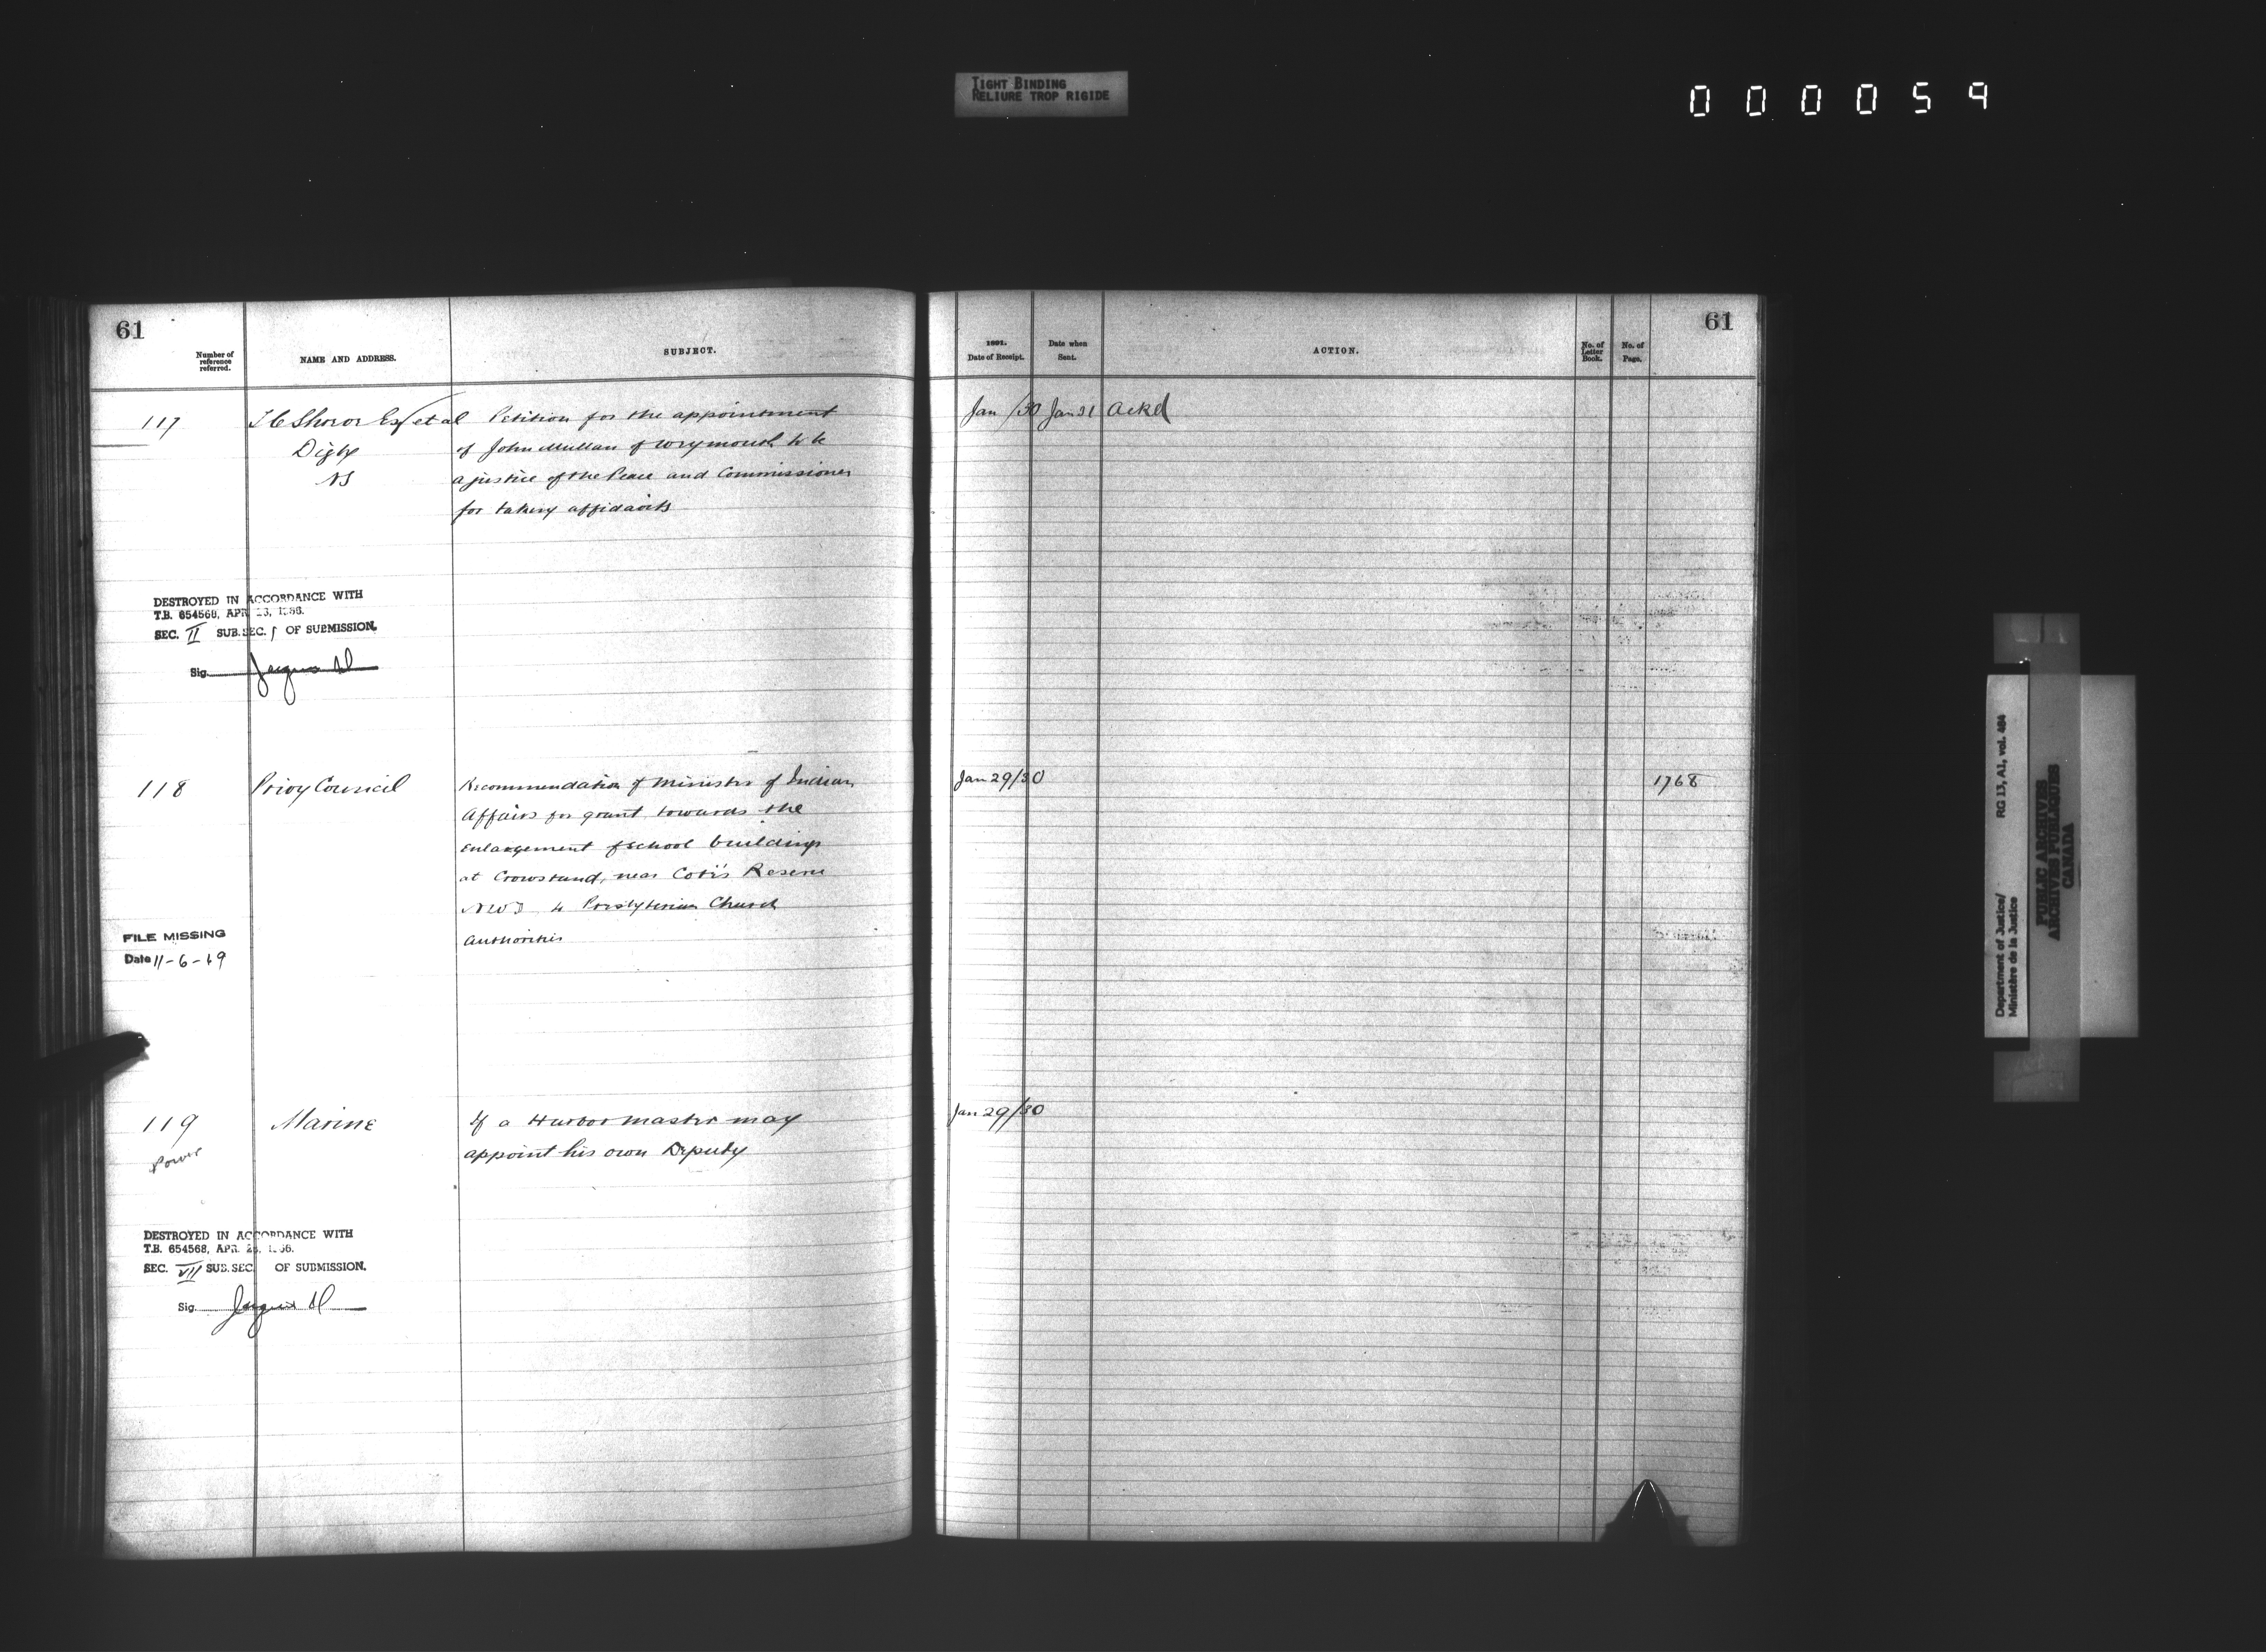 TIGHT BINDING
RELIURE TROP RIGIDE
000059
61
Number of
reference
referred.
NAME AND ADDRESS.
SUBJECT.
117
Esq et al
Digby
NS
Petition for the appointment
of John Mullan of Weymouth to be
a justice of the Peace and Commissioner
for taking affidavits
DESTROYED IN ACCORDANCE WITH
T.B. 654568, APR. 23, 1966.
SEC. II SUB. SEC. 1 OF SUBMISSION.
Sig.
118
Privy Council
Recommendation of Minister of Indian
Affairs for grant towards the
enlargement of school buildings
at Crowstand, near Coté's Reserve
NWT to Presbyterian Church
authorities
FILE MISSING
Date 11-6-69
119
Power
Marine
If a Harbor master may
appoint his own Deputy
DESTROYED IN ACCORDANCE WITH
T.B. 654568, APR. 23, 1966.
SEC. VII SUB. SEC. OF SUBMISSION.
Sig.
61
1891.
Date of Receipt.
Date when
Sent.
ACTION.
No. of
Letter
Book.
No. of
Page.
Jan /30 Jan 31 Ackd
Jan 29/30
1768
Jan 29/30
Department of Justice/
Ministère de la Justice
RG 13, A1, vol. 484
PUBLIC ARCHIVES
ARCHIVES PUBLIQUES
CANADA